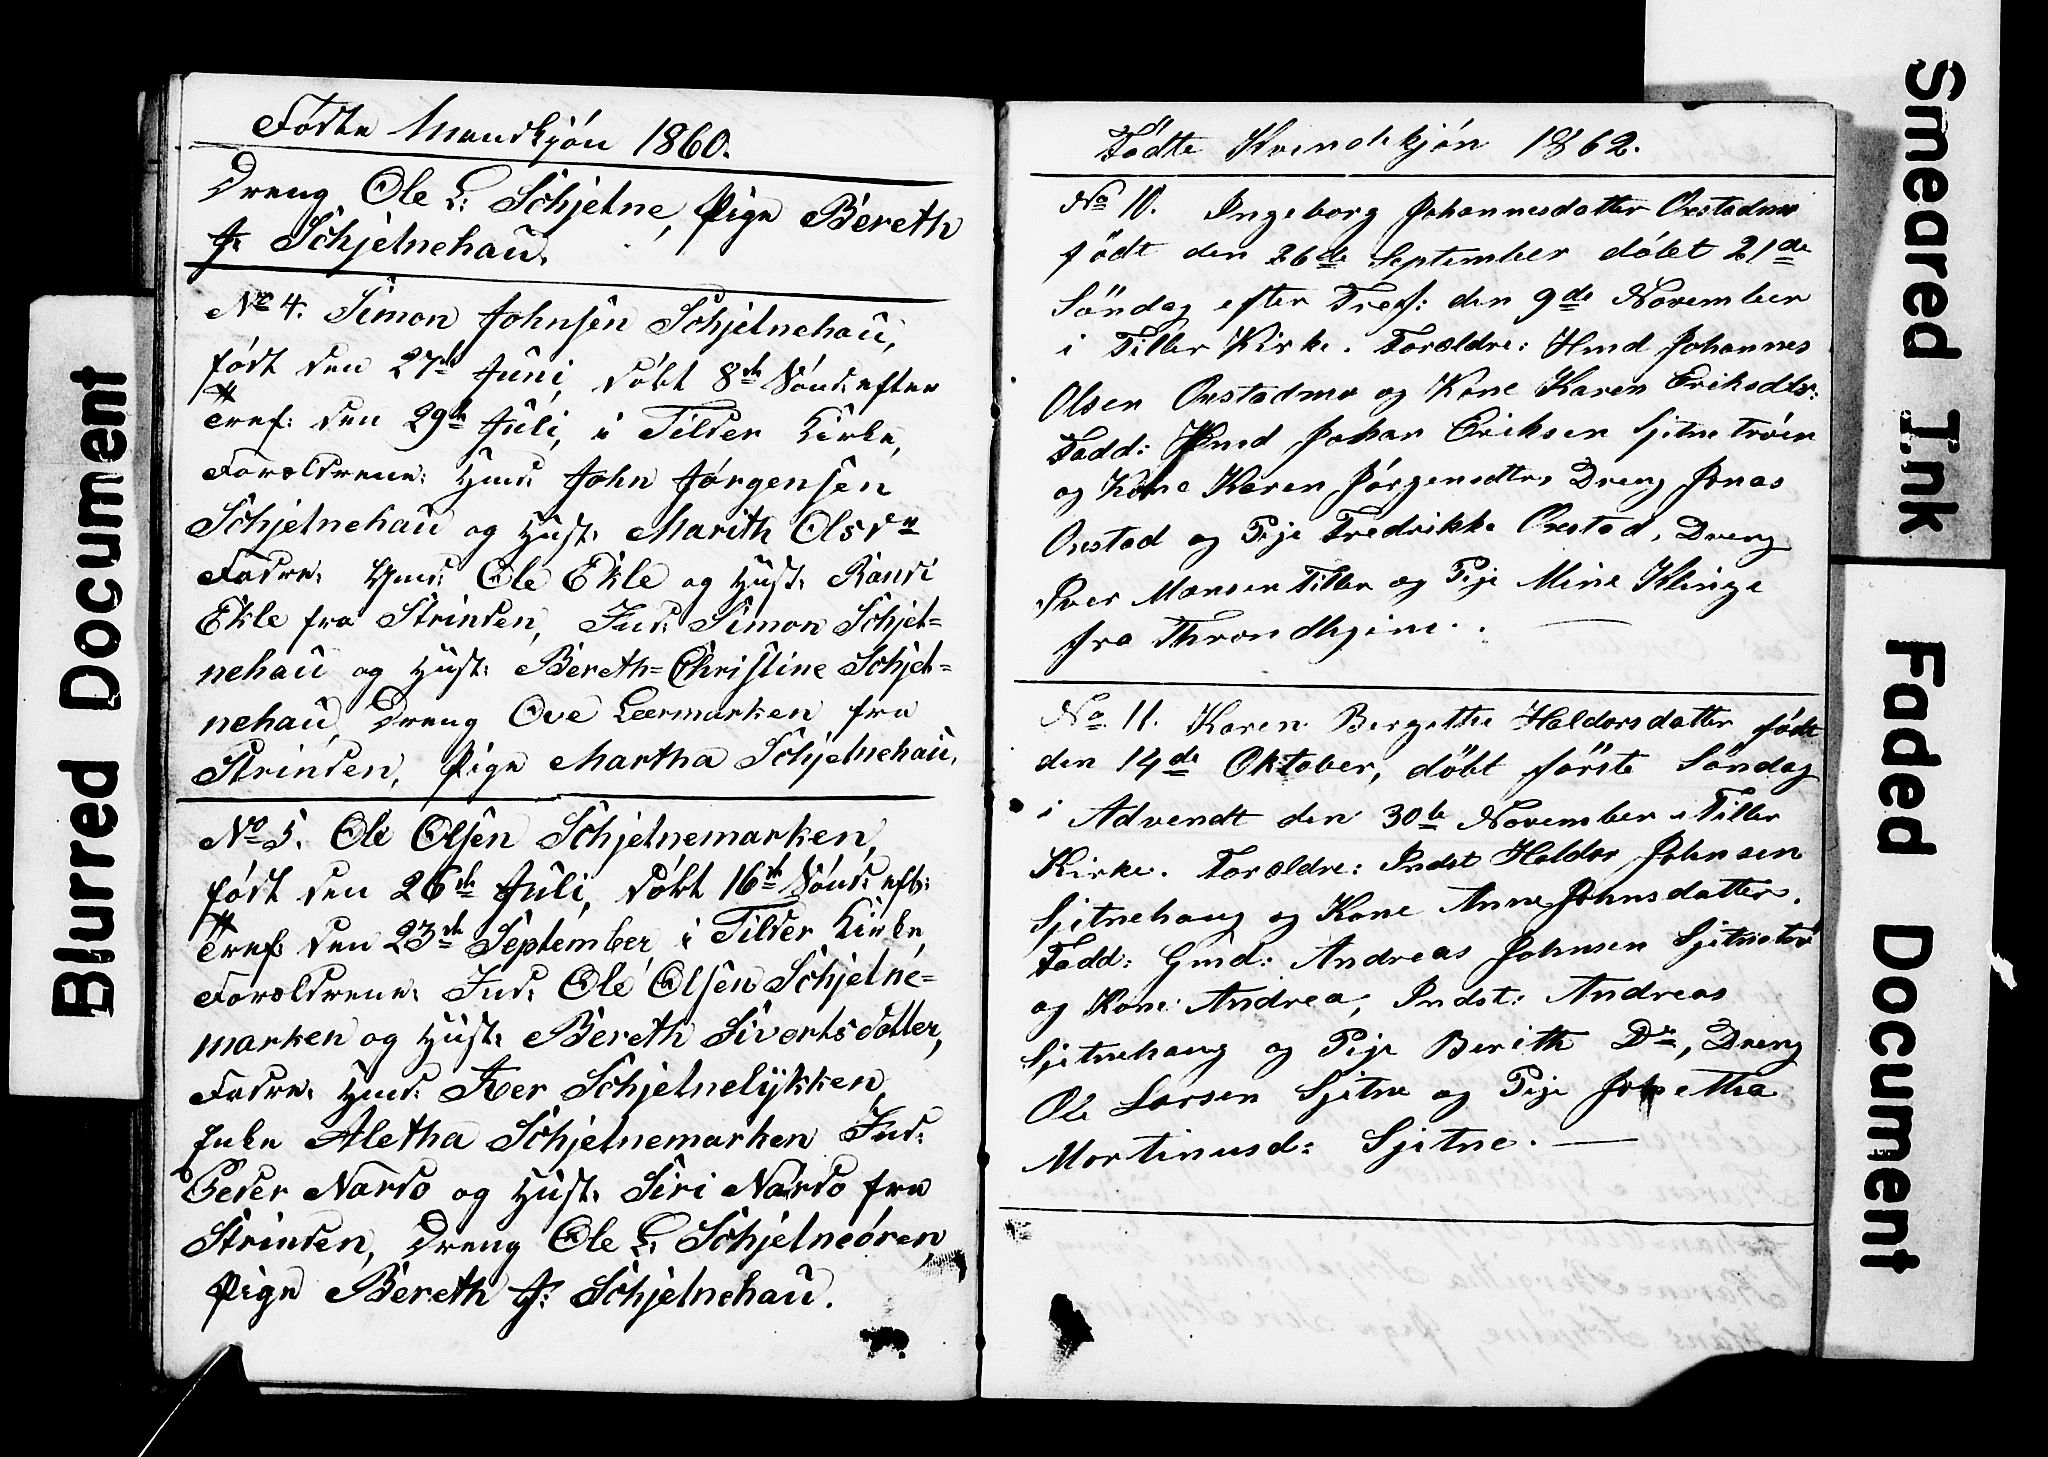 Fødte Mandkjön 1860.
Dreng Ole L: Schjelne, Pige Bereth
J: Schjelnehau.
No 4. Simon Johnsen Schjelnehau,
født den 27de Juni, døbt 8de Sönd: efter
Tref: den 29de Juli, i Tilder Kirke,
Forældrene: Hmd: John Jørgensen
Schjelnehau og Hust: Marith Olsdr
Fadre: Hmd: Ole Ekle og Hust: Randi
Ekle fra Strinden, Ind: Simon Schjel=
nehau og Hust: Bereth=Christine Schjel=
nehau, Dreng Ove Leermarken fra
Strinden, Pige Martha Schjelnehau.
No 5. Ole Olsen Schjelnemarken,
født den 26de Juli, døbt 16de Sönd: eft:
Tref: den 23de September, i Tilder Kirke,
Forældrene: Ind: Ole Olsen Schjelne=
marken og Hust: Bereth Sivertsdatter,
Fadre: Hmd: Iver Schjelnelykken,
Enke Aletha Schjelnemarken Ind:
Peder Nardo og Hust: Siri Nardo fra
Strinden, Dreng Ole L: Schjelneören,
Pige Bereth J: Schjelnehau.
Födte Kvindekjön 1862.
No 10. Ingeborg Johannesdatter Onstadmo
födt den 26de September döbt 21de
Söndag efter Tref: den 9de November
i Tiller Kirke. Forældre: Hmd Johannes
Olsen Onstadmo og Kone Karen Eriksdtr:
Fadd: Hmd Johan Eriksen Sjitnetrøen
og Kone Karen Jörgensdtr, Dreng Jonas
Onstad og Pige Fredrikke Onstad, Dreng
Iver Monsen Tiller og Pige Mine Klinge
fra Throndhjem. .
No 11. Karen Bergitte Haldorsdatter födt
den 14de Oktober, döbt förste Söndag
i Advendt den 30te November i Tiller
Kirke. Forældre: Indst Haldor Johnsen
Sjitnehaug og Kone Anne Johnsdatter.
Fadd: Gmd: Andreas Johnsen Sjitnetrø
og Kone Andrea, Indst: Andreas
Sjitnehaug og Pige Berith Dr, Dreng
Ole Larsen Sjitne og Pige Jonetha
Mortinusd: Sjitne.
Blurred Document
Smeared Ink
Faded Document